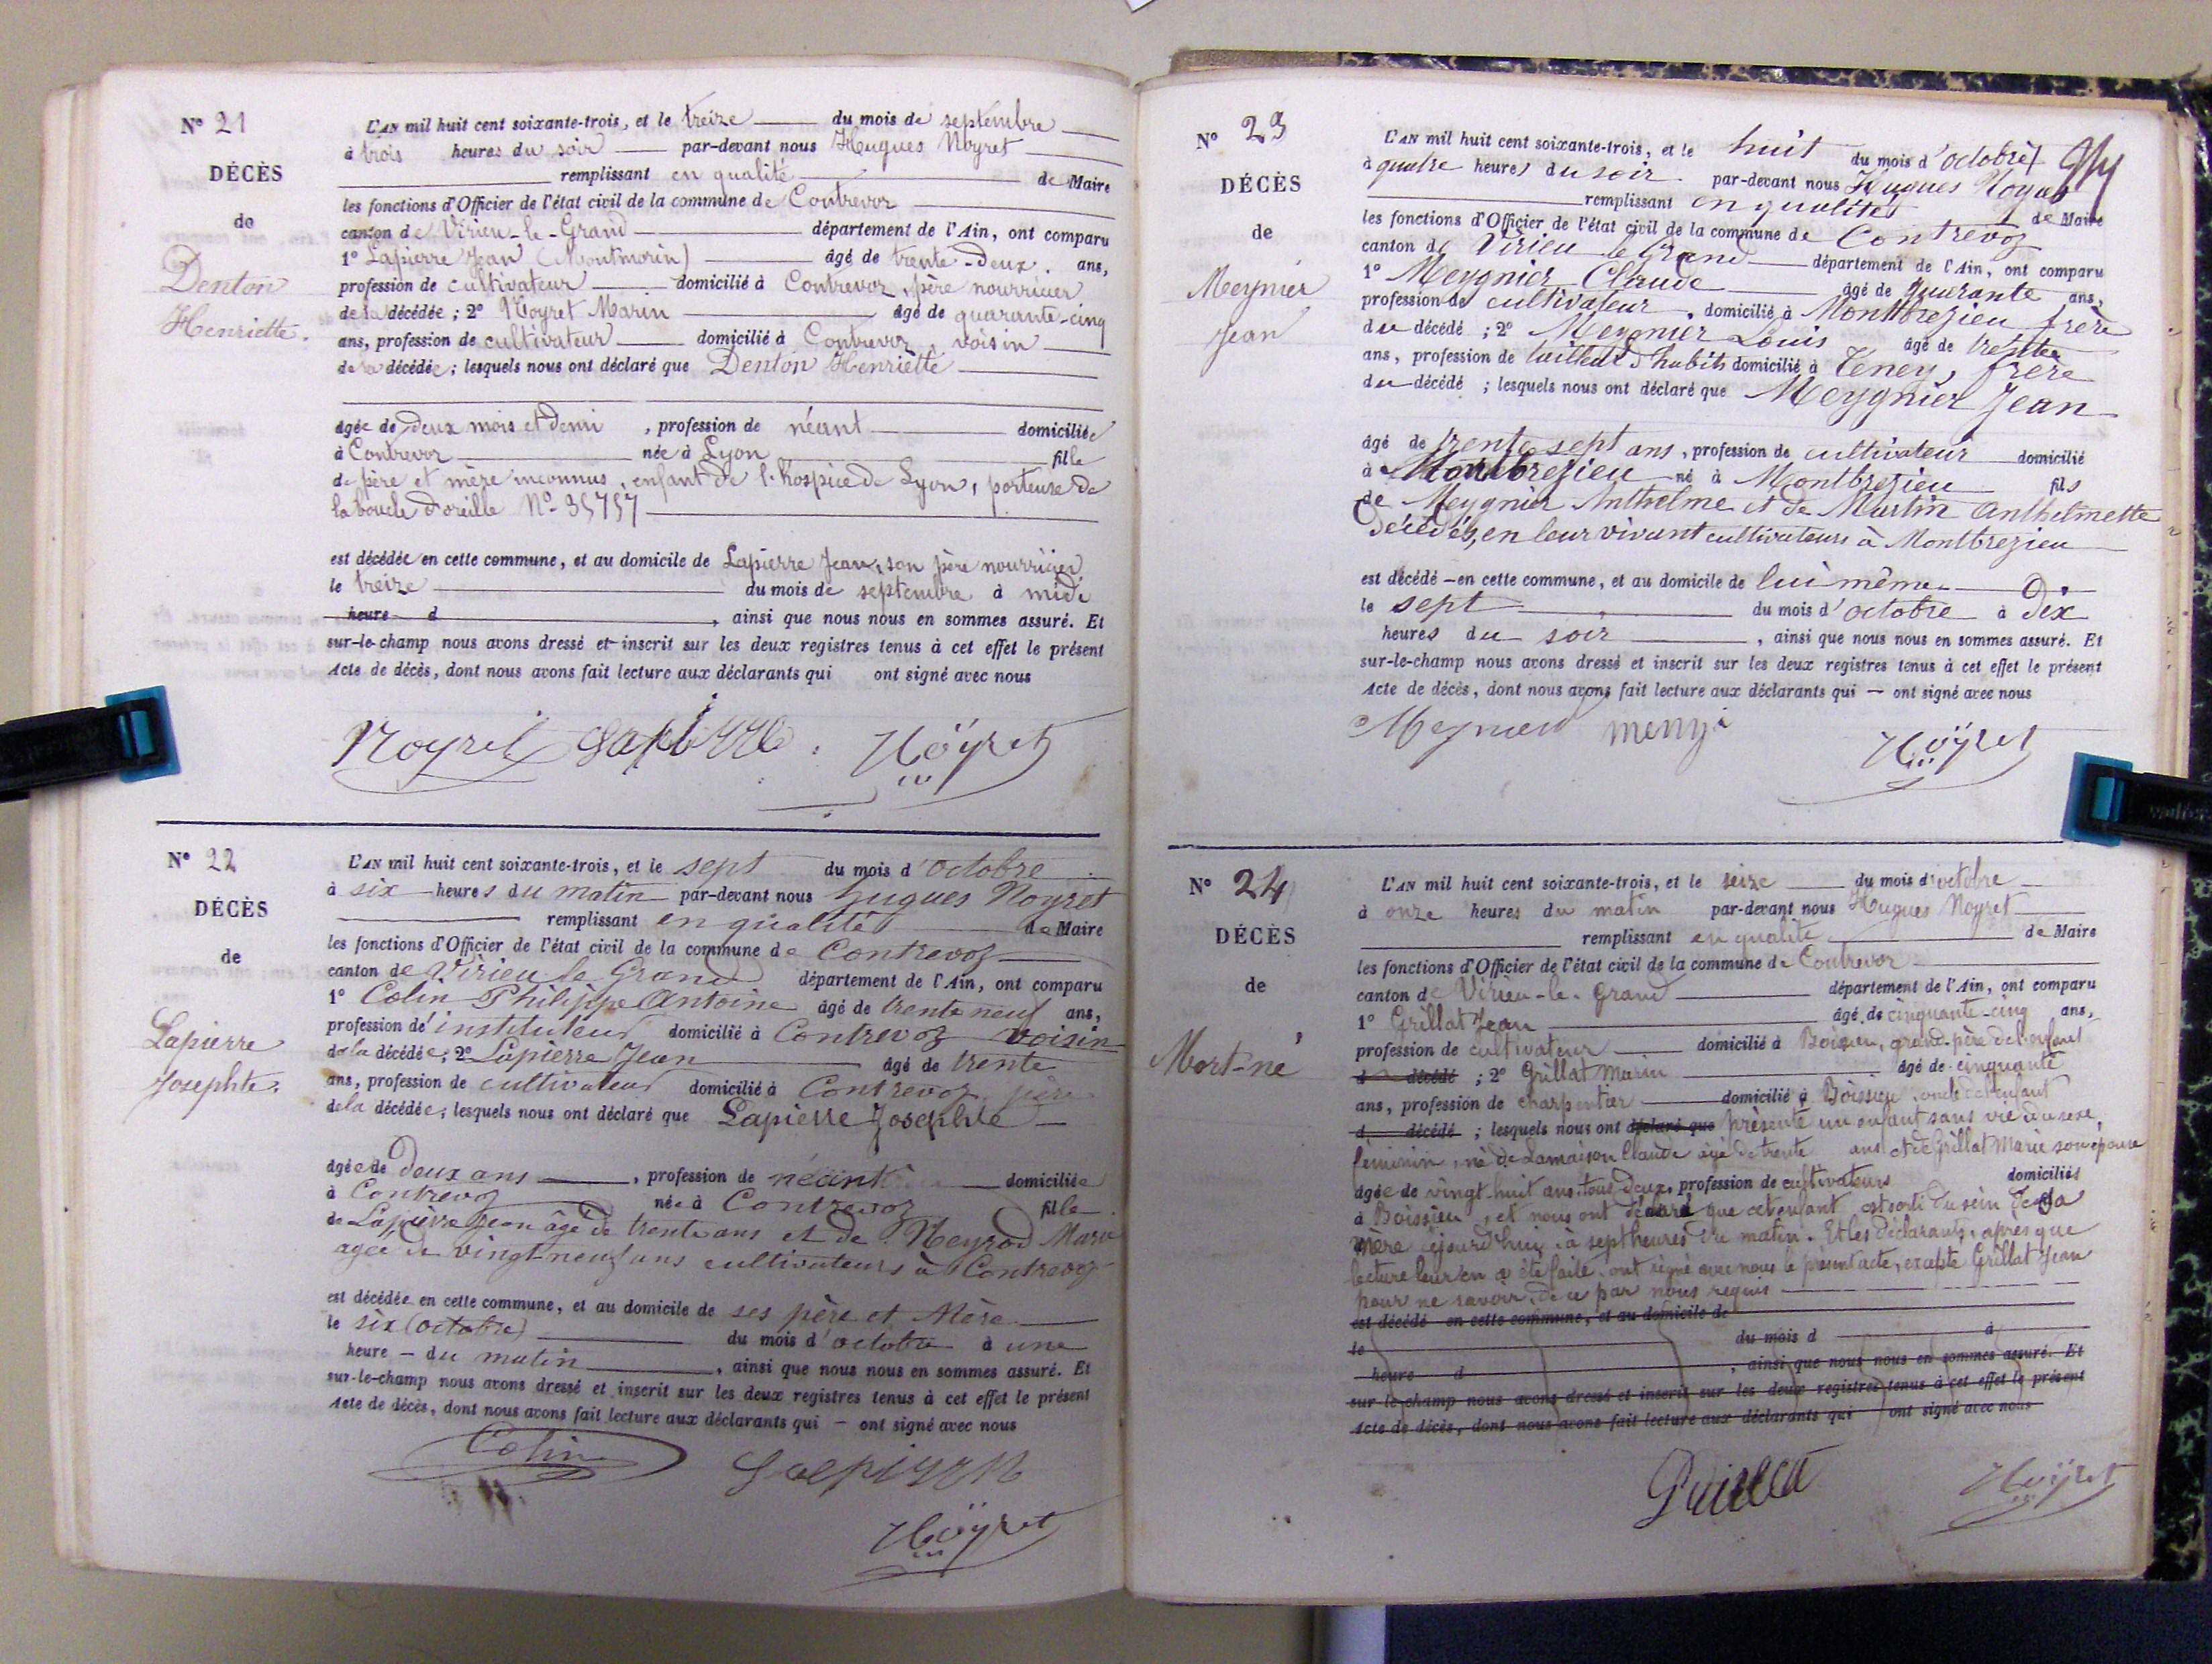 N° 21
DÉCÈS
de
Denton
Henriette.
L'AN mil huit cent soixante-trois, et le treize du mois de septembre
à trois heures du soir par-devant nous Hugues Noyret
remplissant en qualité de Maire
les fonctions d'Officier de l'état civil de la commune de Contrevoz
canton de Virieu-le-Grand département de l'Ain, ont comparu
1° Lapierre Jean (Montmorin) âgé de trente-deux. ans,
profession de cultivateur domicilié à Contrevoz, père nourricier
de la décédée ; 2° Noyret Marin âgé de quarante-cinq
ans, profession de cultivateur domicilié à Contrevoz, voisin
de la décédée ; lesquels nous ont déclaré que Denton Henriette
âgée de deux mois et demi , profession de néant domiciliée
à Contrevoz née à Lyon fille
de père et mère inconnus, enfant de l'hospice de Lyon, porteuse de
la boucle d'oreille N° 35757
est décédée en cette commune, et au domicile de Lapierre Jean, son père nourricier
le treize du mois de septembre à midi
heure d , ainsi que nous nous en sommes assuré. Et
sur-le-champ nous avons dressé et inscrit sur les deux registres tenus à cet effet le présent
Acte de décès, dont nous avons fait lecture aux déclarants qui ont signé avec nous
Noyret Noyret
N° 22
DÉCÈS
de
Lapierre
Josephte.
L'AN mil huit cent soixante-trois, et le sept du mois d'octobre
à six heures du matin par-devant nous hugues Noyret
remplissant en qualité de Maire
les fonctions d'Officier de l'état civil de la commune de Contrevoz
canton de Virieu le Grand département de l'Ain, ont comparu
1° Colin Philippe Antoine âgé de trente neuf ans,
profession d'instituteur domicilié à Contrevoz voisin
de la décédée ; 2° Lapierre Jean âgé de trente
ans, profession de cultivateur domicilié à Contrevoz père
de la décédée ; lesquels nous ont déclaré que Lapierre Josephte
âgée de Deux ans , profession de néant domiciliée
à Contrevoz née à Contrevoz fille
de Lapierre Jean âgé de trente ans et de Marie
agée de vingt-neuf ans cultivateurs à Contrevoz
est décédée en cette commune, et au domicile de ses père et Mère
le six (octobre) du mois d'octobre à une
heure du matin , ainsi que nous nous en sommes assuré. Et
sur-le-champ nous avons dressé et inscrit sur les deux registres tenus à cet effet le présent
Acte de décès, dont nous avons fait lecture aux déclarants qui — ont signé avec nous
Colin
Noyret
N° 23
DÉCÈS
de
Meynier
Jean
L'AN mil huit cent soixante-trois, et le huit du mois d'octobre
à quatre heures du soir par-devant nous Hugues Noyret
remplissant en qualité de Maire
les fonctions d'Officier de l'état civil de la commune de Contrevoz
canton de Virieu le Grand département de l'Ain, ont comparu
1° Meygnier Claude âgé de quarante ans,
profession de cultivateur , domicilié à Montbrezieu frère
du décédé ; 2° Meygnier Louis âgé de trente
ans, profession de tailleur d'habits domicilié à Teney, frère
du décédé ; lesquels nous ont déclaré que Meygnier Jean
âgé de trente sept ans , profession de cultivateur domicilié
à Montbrezieu né à Montbrezieu fils
de Meygnier Anthelme et de Martin Anthelmette
Décédés, en leur vivant cultivateurs à Montbrezieu
est décédé en cette commune, et au domicile de lui même
le sept du mois d'octobre à Dix
heures du soir , ainsi que nous nous en sommes assuré. Et
sur-le-champ nous avons dressé et inscrit sur les deux registres tenus à cet effet le présent
Acte de décès, dont nous avons fait lecture aux déclarants qui — ont signé avec nous
Noyret
N° 24
DÉCÈS
de
Mort-né
L'AN mil huit cent soixante-trois, et le seize du mois d'octobre
à onze heures du matin par-devant nous Hugues Noyret
remplissant en qualité de Maire
les fonctions d'Officier de l'état civil de la commune de Contrevoz
canton de Virieu-le-Grand département de l'Ain, ont comparu
1° Grillat Jean âgé de cinquante-cinq ans,
profession de cultivateur domicilié à Boissieu, grand-père de l'enfant
d décédé ; 2° Grillat Marin âgé de cinquante
ans, profession de charpentier domicilié à Boissieu, oncle de l'enfant
d décédé ; lesquels nous ont déclaré que présenté un enfant sans vie du sexe
feminin, né de Lamaison Claude âgé de trente ans et de Grillat Marie son épouse
âgée de vingt-huit ans, tous deux, profession de cultivateurs domiciliés
à Boissieu, et nous ont déclaré que cet enfant est sorti du sein de sa
mère aujourd'hui, à sept heures du matin. Et les déclarants, après que
lecture leur en a été faite, ont signé avec nous le présent acte, excepté Grillat Jean
pour ne savoir, de ce par nous requis
est décédé en cette commune, et au domicile de
le du mois d à
heure d , ainsi que nous nous en sommes assuré. Et
sur-le-champ nous avons dressé et inscrit sur les deux registres tenus à cet effet le présent
Acte de décès, dont nous avons fait lecture aux déclarants qui ont signé avec nous
Noyret